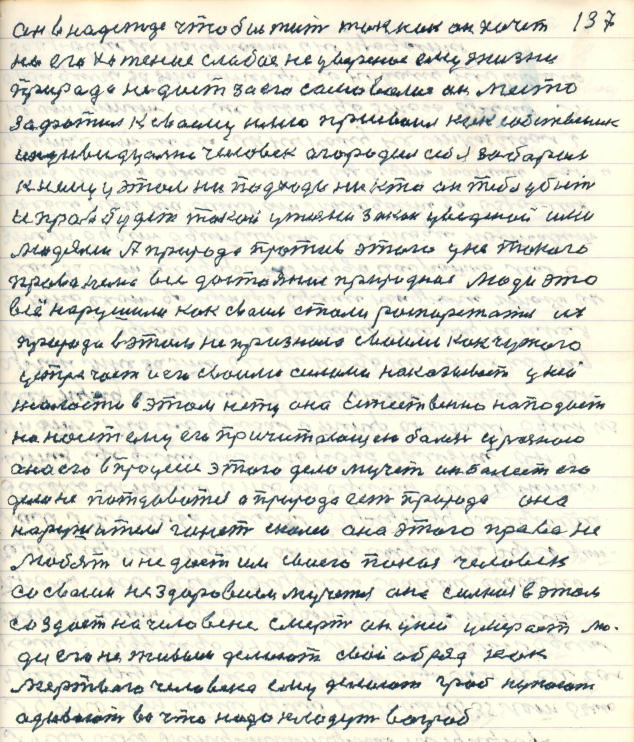 он в надежде чтобы жить так как он хочет 137
на его хотение слабое не увереное ему жизни
природа не даст за его самоволие он место
захватил к своему имю присвоил как собственик
индивидуални человек огородил себя забором
к нему у этом не подходи никто он тебя убьет
и прав будет такой у жизни закон уведеной ими
людями А природа против этого у не такого
права нема все достояние природная люди это
всё нарушили как своим стали роспоряжатся их
природа в этом не признала своими как чужого
устречает и его своими силами наказывает у ней
жалости в этом нету она Естественно нападает
на него ему его причиталощею болезн
она его в процесе этого дело мучет он болеет его
дело не потдаватся а природа ест природа она
нарушителя гонет силой она этого права не
любят и не даст им своего покоя человек
со своим нездоровием мучется она силная в этом
создает на человеке смерт он у ней умерает лю-
ди его не живым делают свой обряд как
мертвого человека ему делают гроб купают
адывают во что надо кладут в гроб